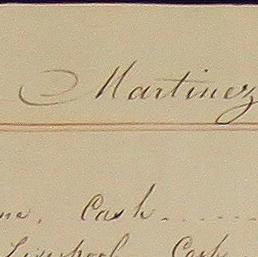 Martinez
Cash
Liverpool Cash